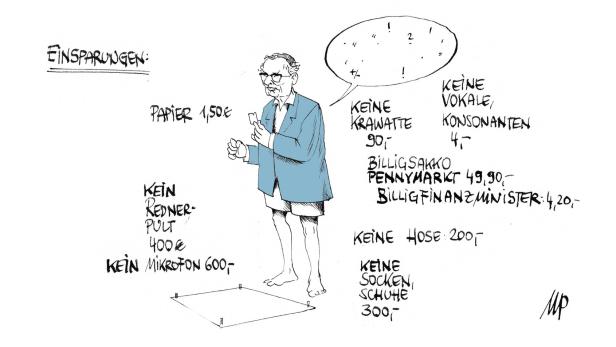 EINSPARUNGEN:
! 2 !
+/- !
PAPIER 1,50€
KEINE
KRAWATTE
90,-
KEINE
VOKALE,
KONSONANTEN
4,-
BILLIGSAKKO
PENNYMARKT 49,90,-
BILLIGFINANZMINISTER: 4,20,-
KEIN
REDNER-
PULT
400€
KEIN MIKROFON 600,-
KEINE HOSE: 200,-
KEINE
SOCKEN,
SCHUHE
300,-
MP